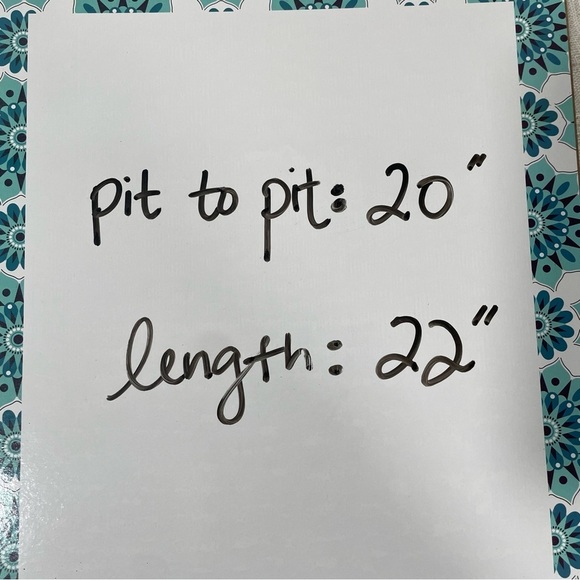 pit to pit: 20"
length: 22"